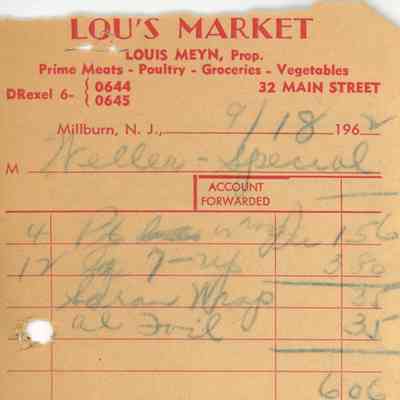 LOU'S MARKET
LOUIS MEYN, Prop.
Prime Meats - Poultry - Groceries - Vegetables
DRexel 6- { 0644 0645
32 MAIN STREET
Millburn, N. J., 9/18 1962
M Weller - Special
ACCOUNT FORWARDED
4 1 56
12 7-up 3 80
Saran Wrap 35
Al Foil 35
6 06